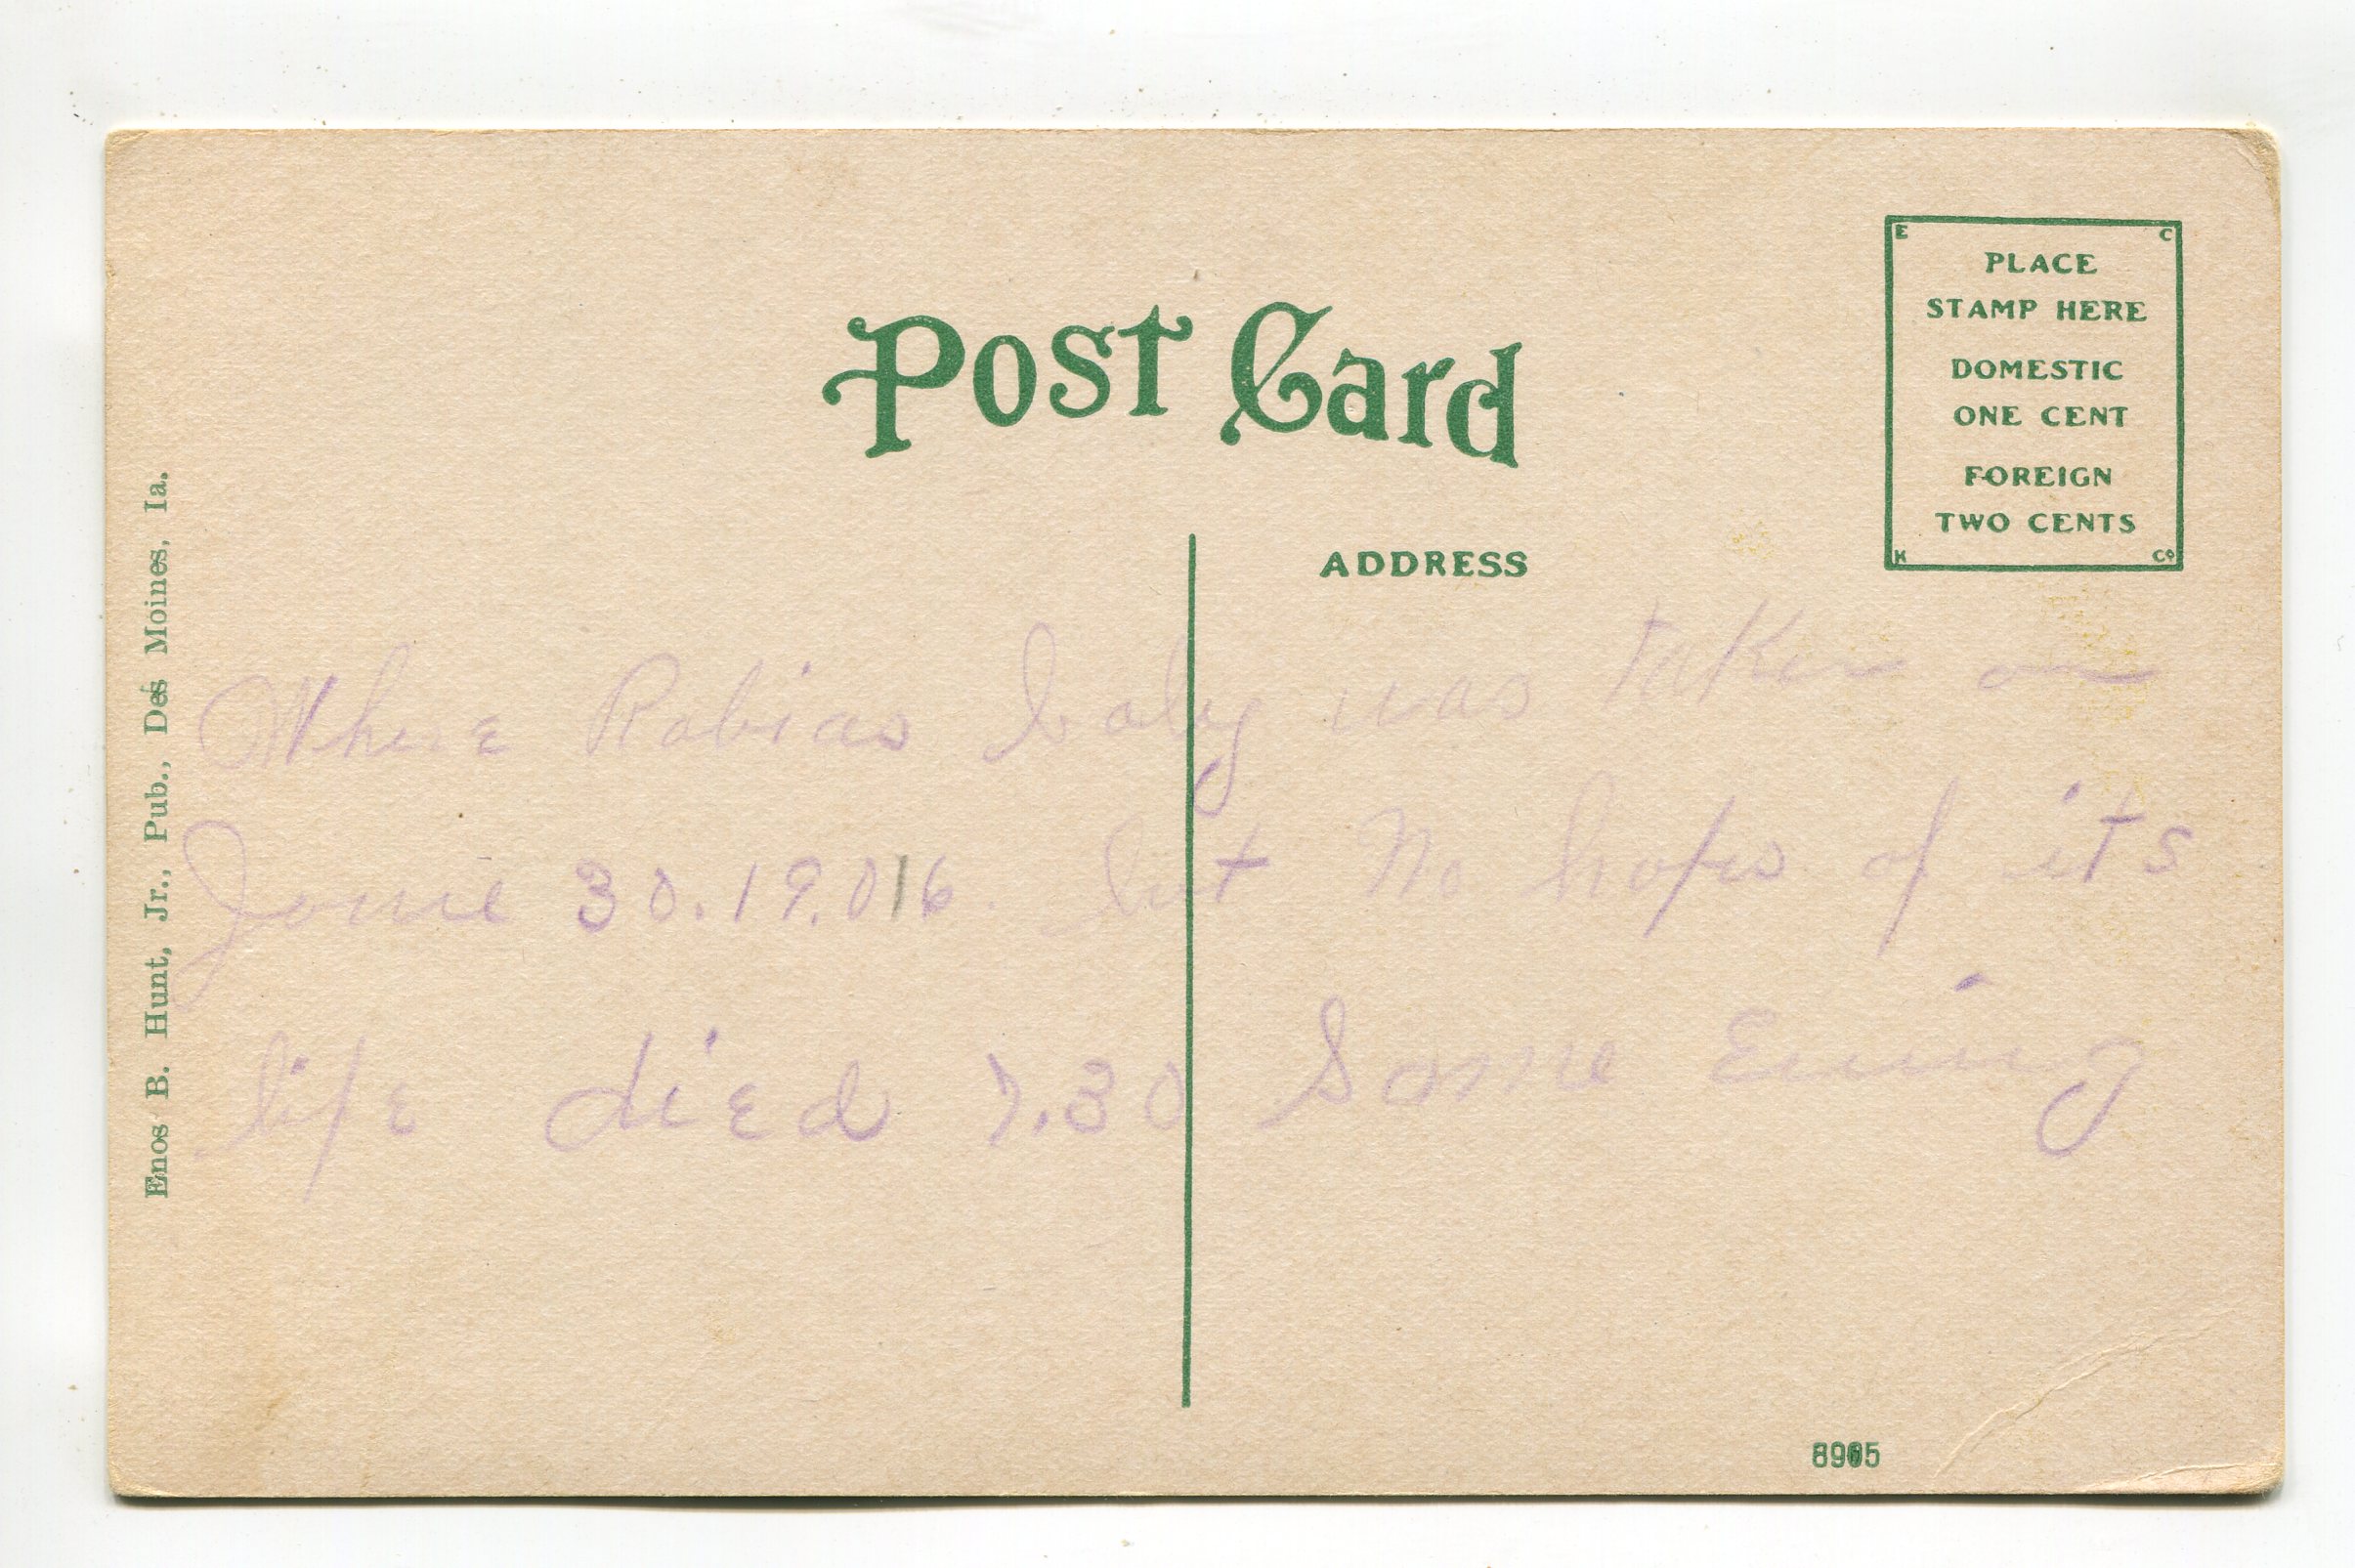 Post Card
E C
PLACE
STAMP HERE
DOMESTIC
ONE CENT
FOREIGN
TWO CENTS
K Co
ADDRESS
Enos B. Hunt, Jr., Pub., Des Moines, Ia.
Where Robias baby was taken on
June 30.19.016. but No hopes of its
life died 7.30 Same Evening